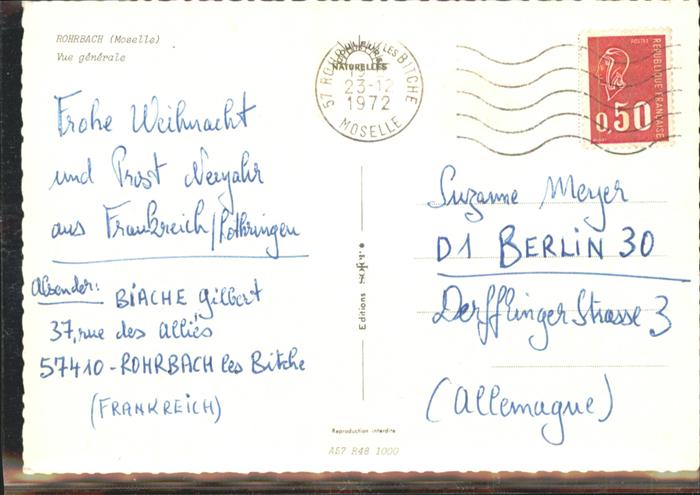 ROHRBACH (Moselle)
Vue générale
Frohe Weihnacht
und Prost Neujahr
aus Frankreich/Lothringen
Absender: BIACHE Gilbert
37, rue des Alliés
57410 - ROHRBACH les Bitche
(FRANKREICH)
57 ROHRBACH LES BITCHE
NATURELLES
23-12
1972
MOSELLE
POSTES
REPUBLIQUE FRANÇAISE
0,50
Suzanne Meyer
D1 BERLIN 30
Derfflinger Strasse 3
(Allemagne)
Editions
Reproduction interdite
A57 R48 1000